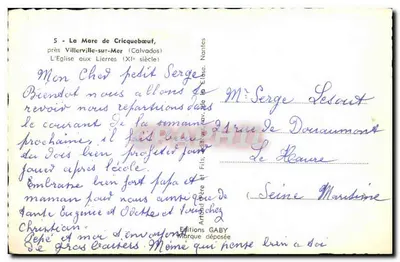 5 - La Mare de Cricquebœuf,
près Villerville-sur-Mer (Calvados)
L'Eglise aux Lierres (XIᵉ siècle)
Mon Cher petit Serge
Bientot nous allons te
revoir nous repartirons dans
le courant de la semaine
prochaine, il fait beau
tu dois bien profiter
jouer après l'école.
Embrasse bien fort papa et
maman pour nous ainsi que
tante Eugenie et Odette et
Christian.
Pépé et moi t'envoyons
de gros baisers. Mémé qui pense bien a toi
Mr Serge
rue de Douaumont
Le Havre
Seine Maritime
Editions GABY
Marque déposée
Artaud Père et Fils, Nantes